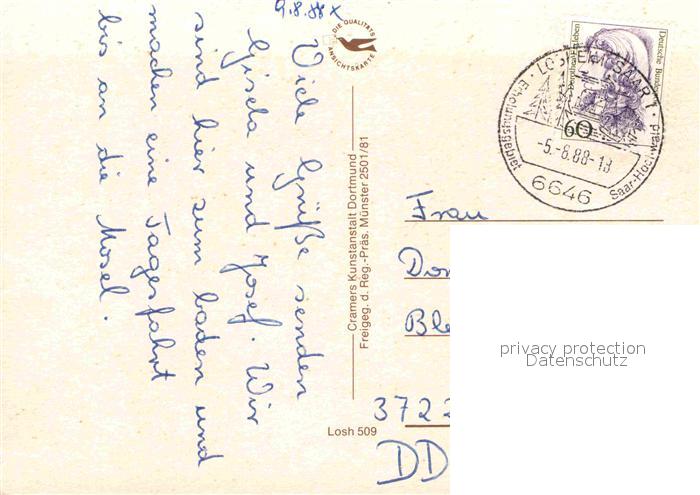 9.8.88 x
Viele Grüße senden
Gisela und Josef. Wir
sind hier zum baden und
machen eine Tagesfahrt
bis an die Mosel.
DIE QUALITÄTS
ANSICHTSKARTE
Cramers Kunstanstalt Dortmund
Freigeg. d. Reg.-Präs. Münster 2501/81
Losh 509
Deutsche Bundes
60
SAAR 1
Erholungsgebiet
-5.-8.88-18
Saar-Hochwald
6646
Frau
Don
Ble
3722
DD
privacy protection
Datenschutz